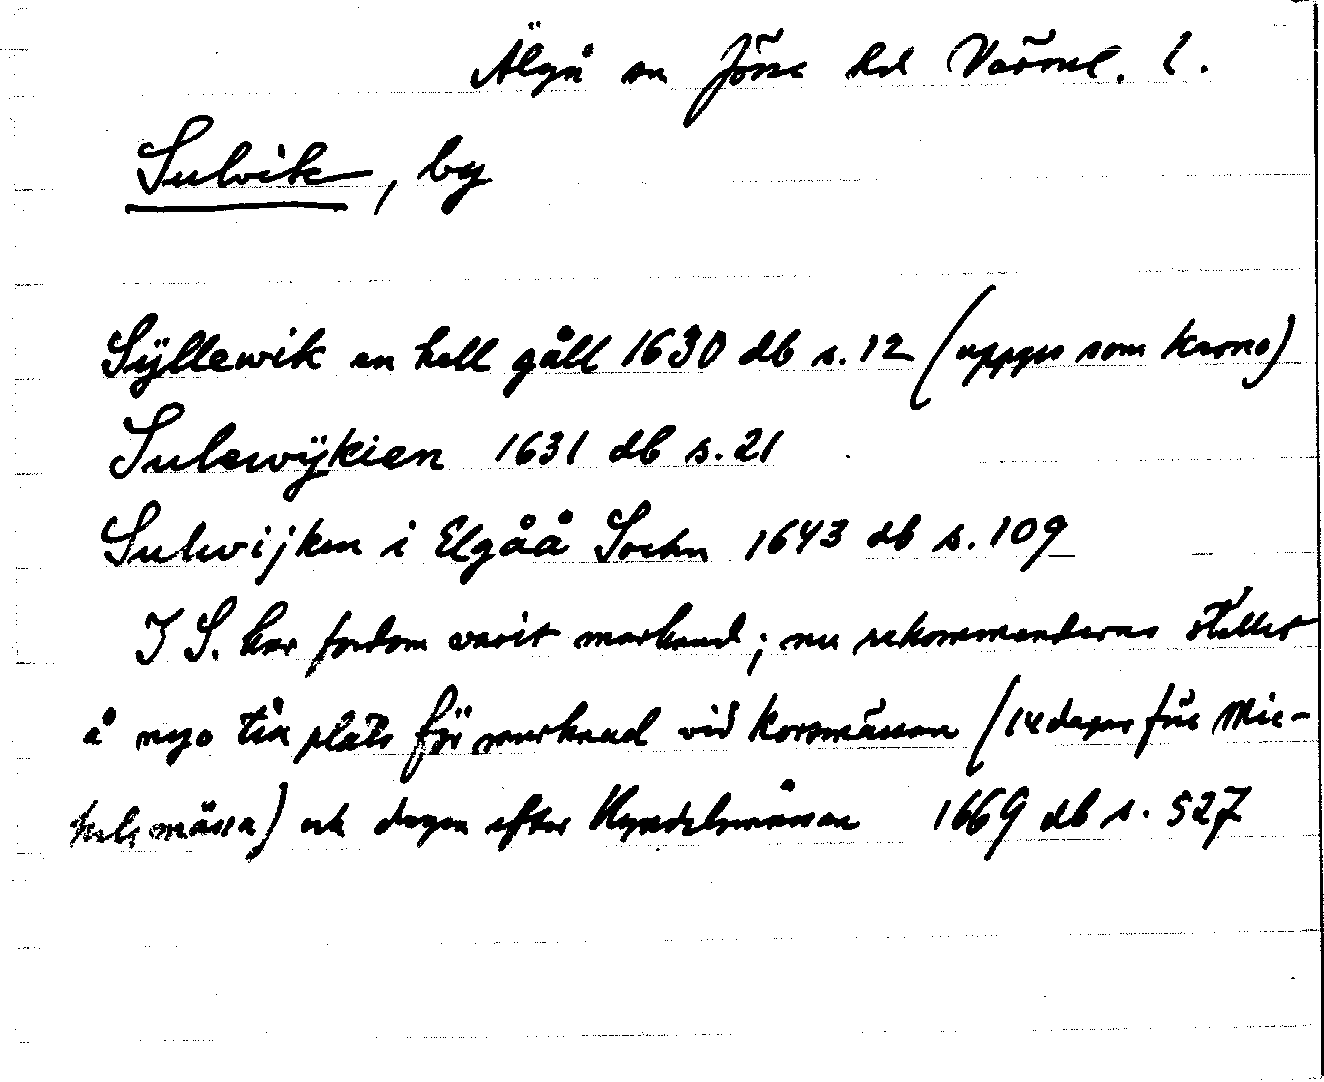 Älgå sn Jösse hd Värml. l.
Sulvik, by
Sÿllewik en hell gåll 1630 db s. 12 (uppges som krono)
Sulewÿkien 1631 db s. 21
Sulwijken i Elgåå Sochn 1643 db s. 109
I S. har fordom varit marknad; nu rekommenderas stället
å nyo till plats för marknad vid Korsmässan (14 dagar före Mic-
kelsmässa) och dagen efter Kyndelsmässan 1669 db s. 527